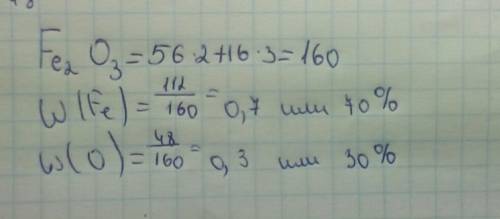 Fe₂O₃=56·2+16·3=160
W(Fe)=112/160=0,7 или 70%
W(O)=48/160=0,3 или 30%